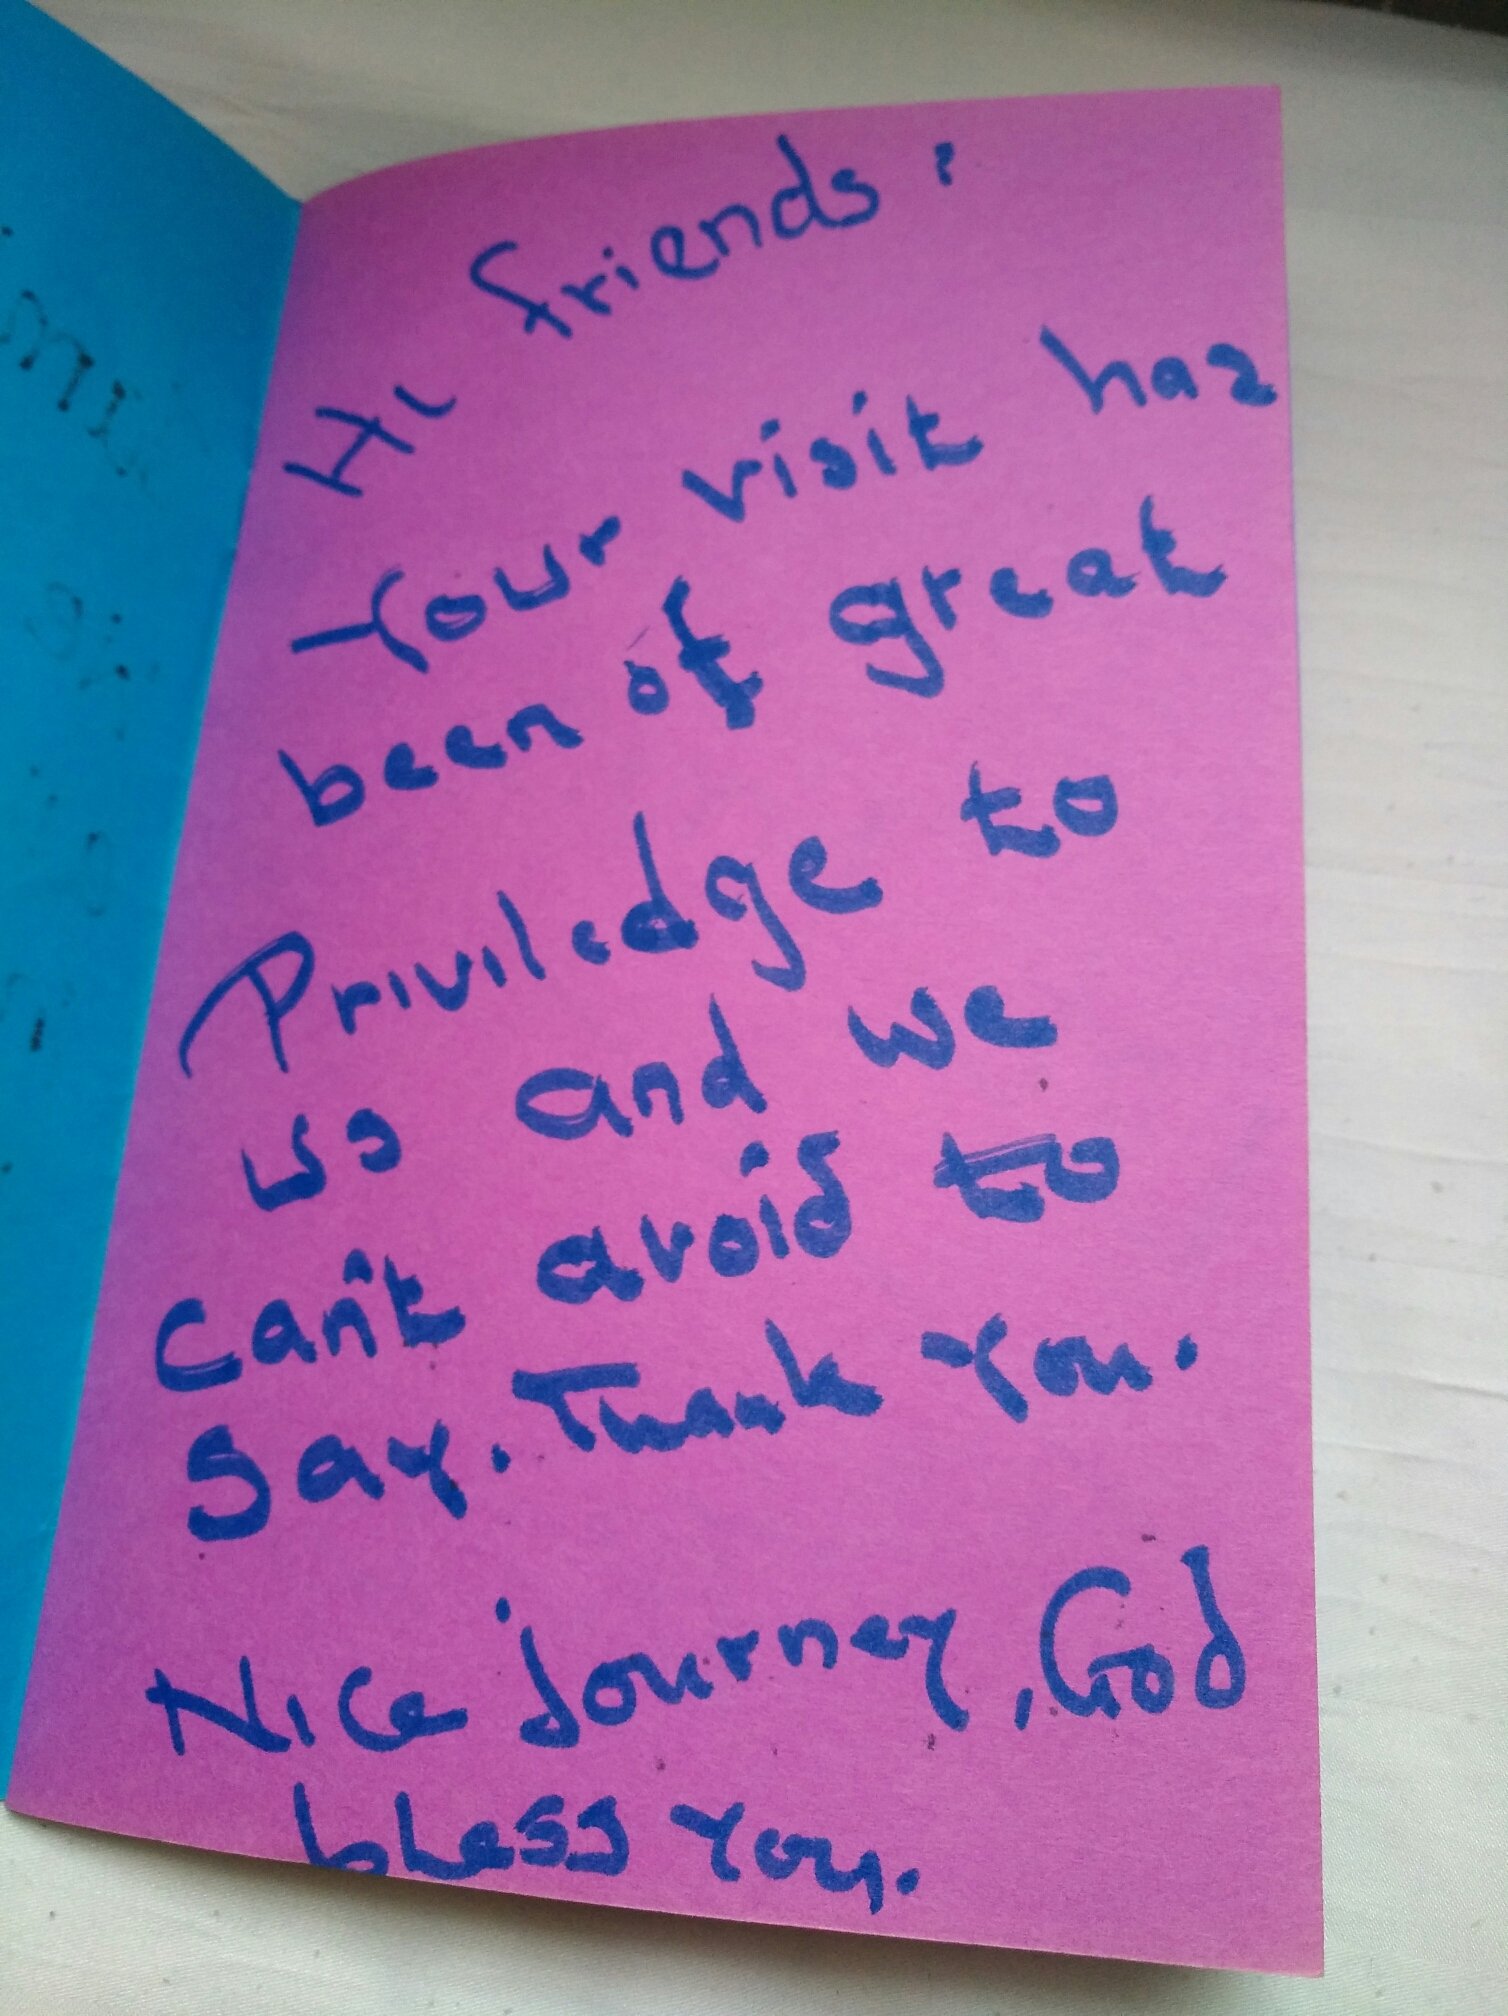 Hi friends:
Your visit has
been of great
Priviledge to
us and we
can't avoid to
say. Thank You.
Nice journey, God
bless You.